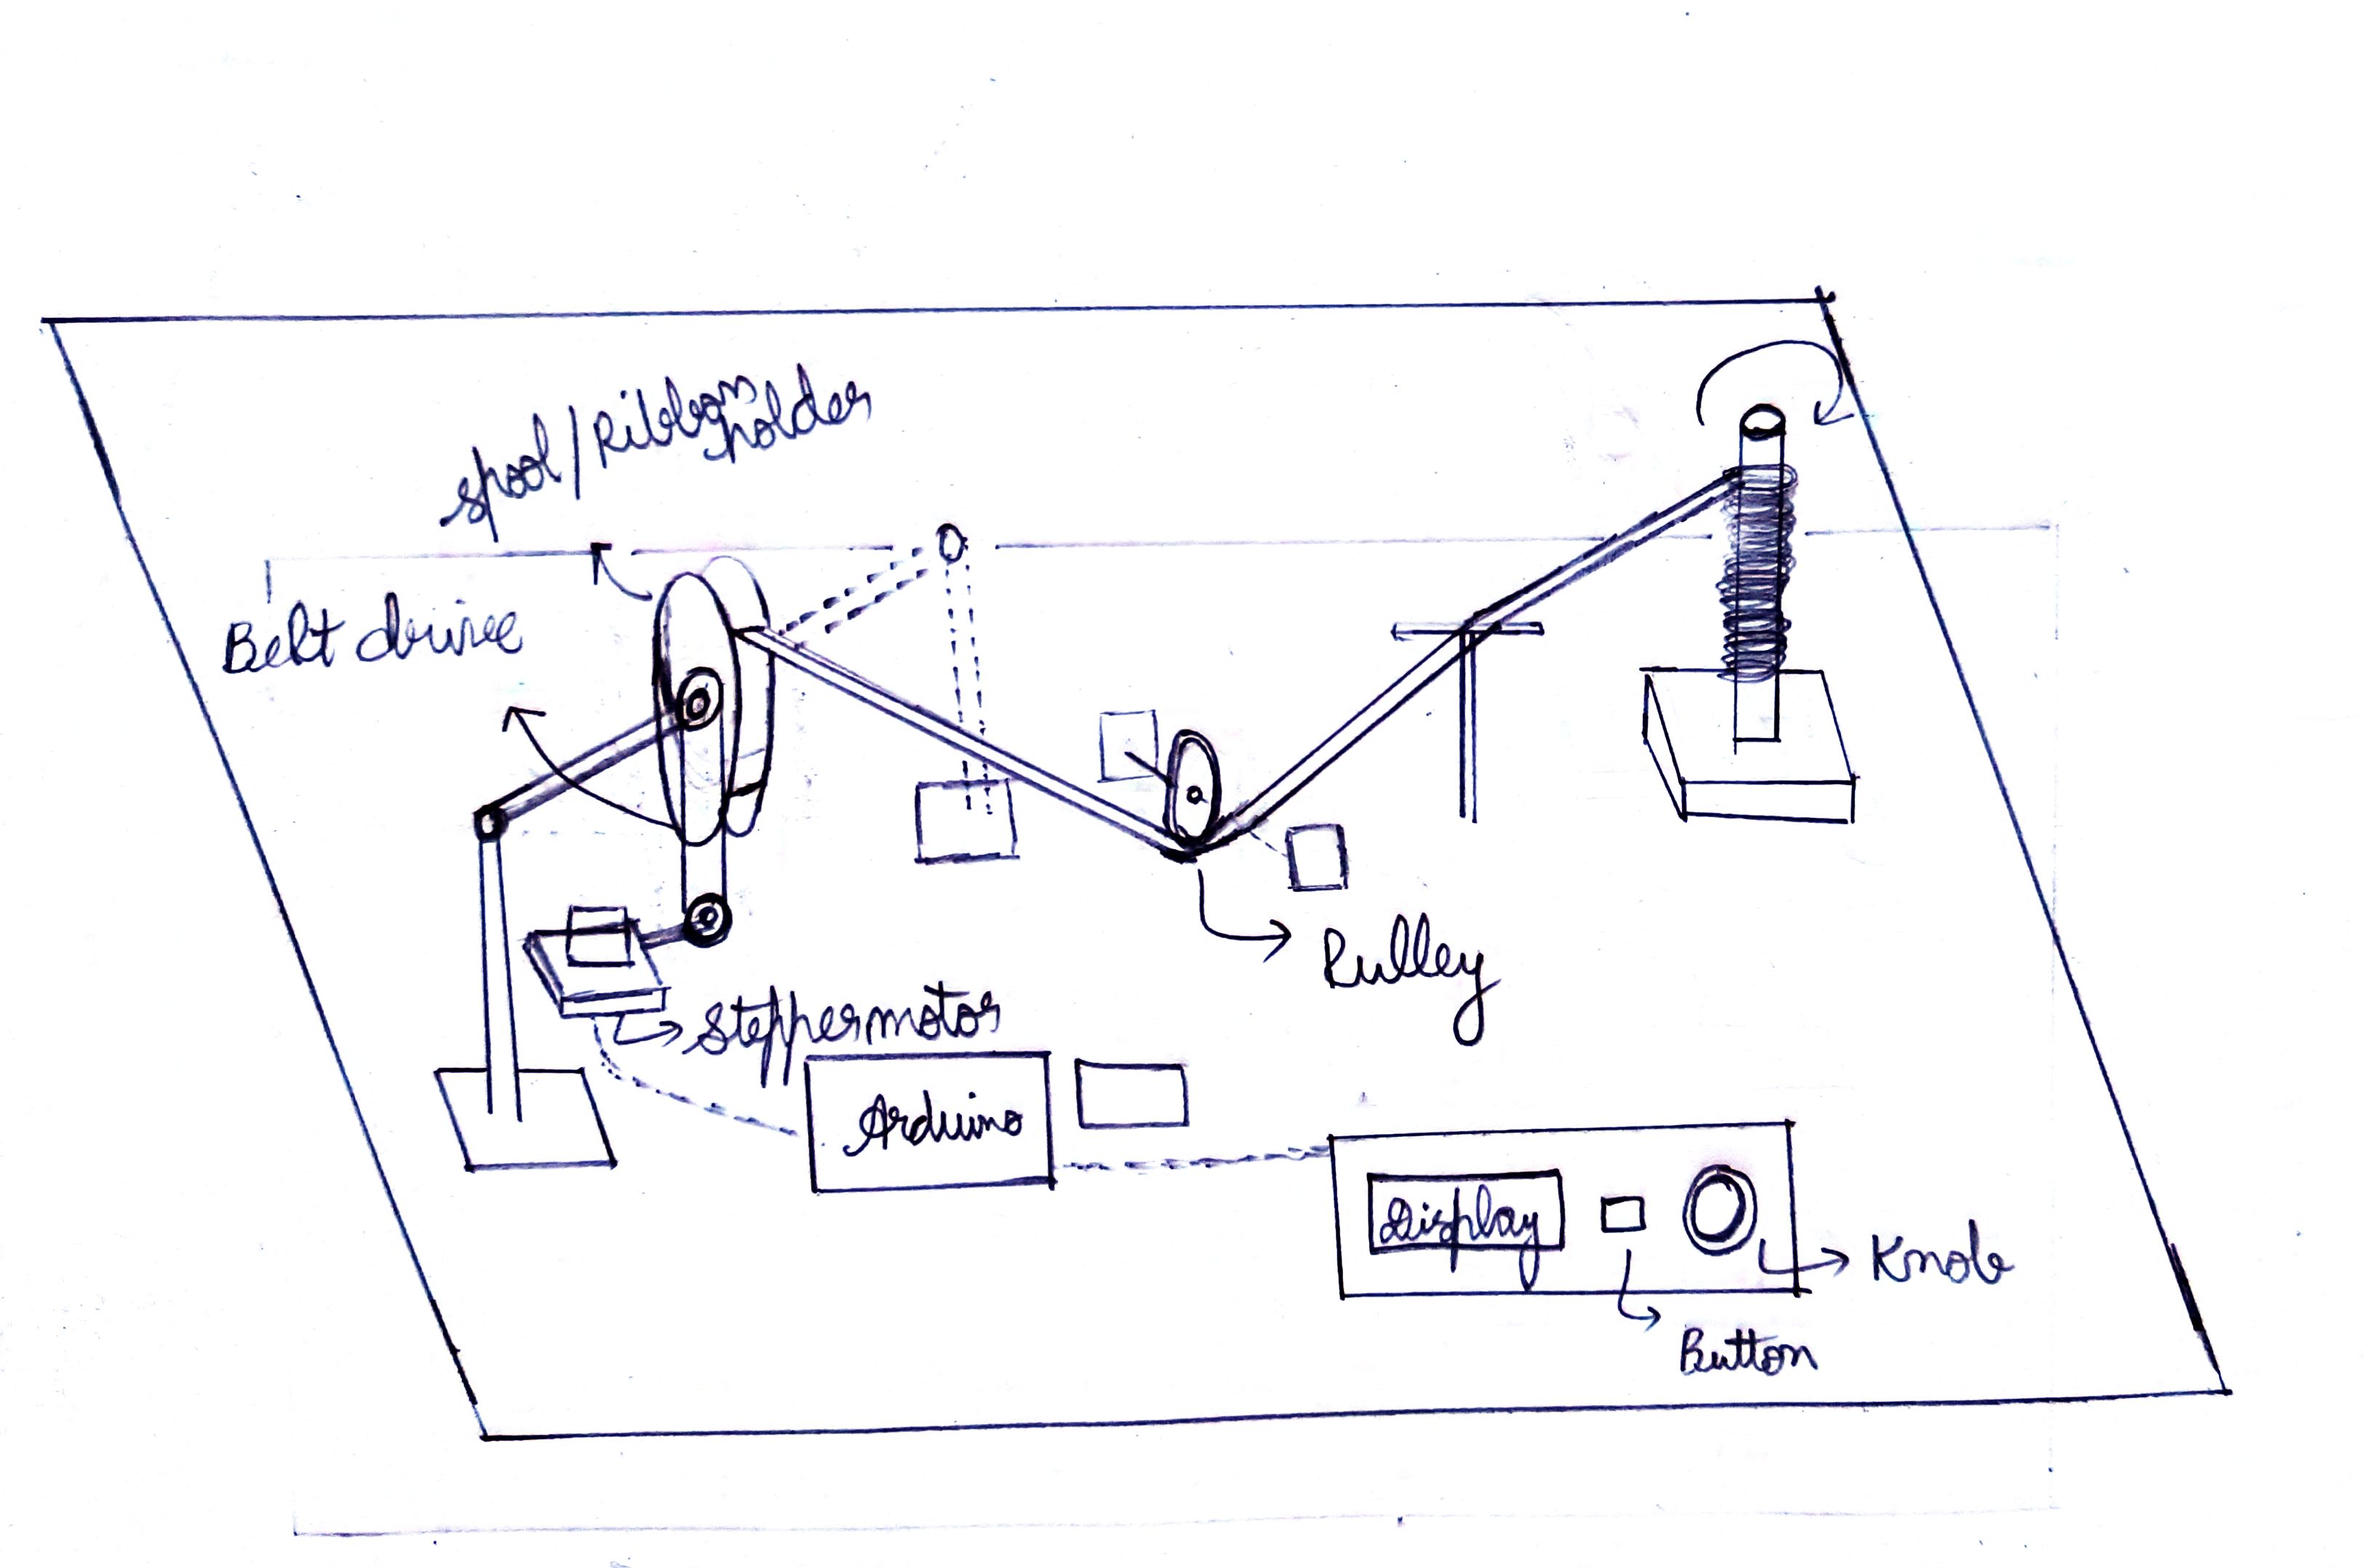 spool/Ribbon
holder
Belt drive
Pulley
Steppermotor
Arduino
Display
Knob
Button